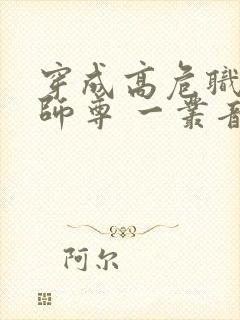 穿成高危职
師尊 一叢音
阿尔